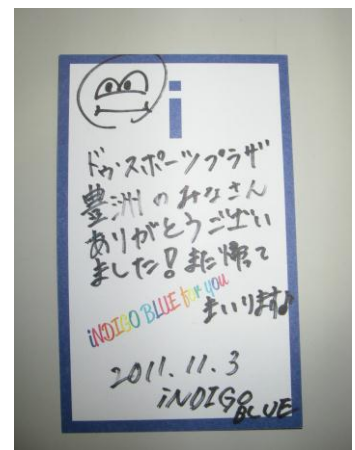 i
ドゥ・スポーツプラザ
豊洲のみなさん
ありがとうござい
ました!また帰って
まいります♪
iNDIGO BLUE for you
2011.11.3
iNDIGO
BLUE